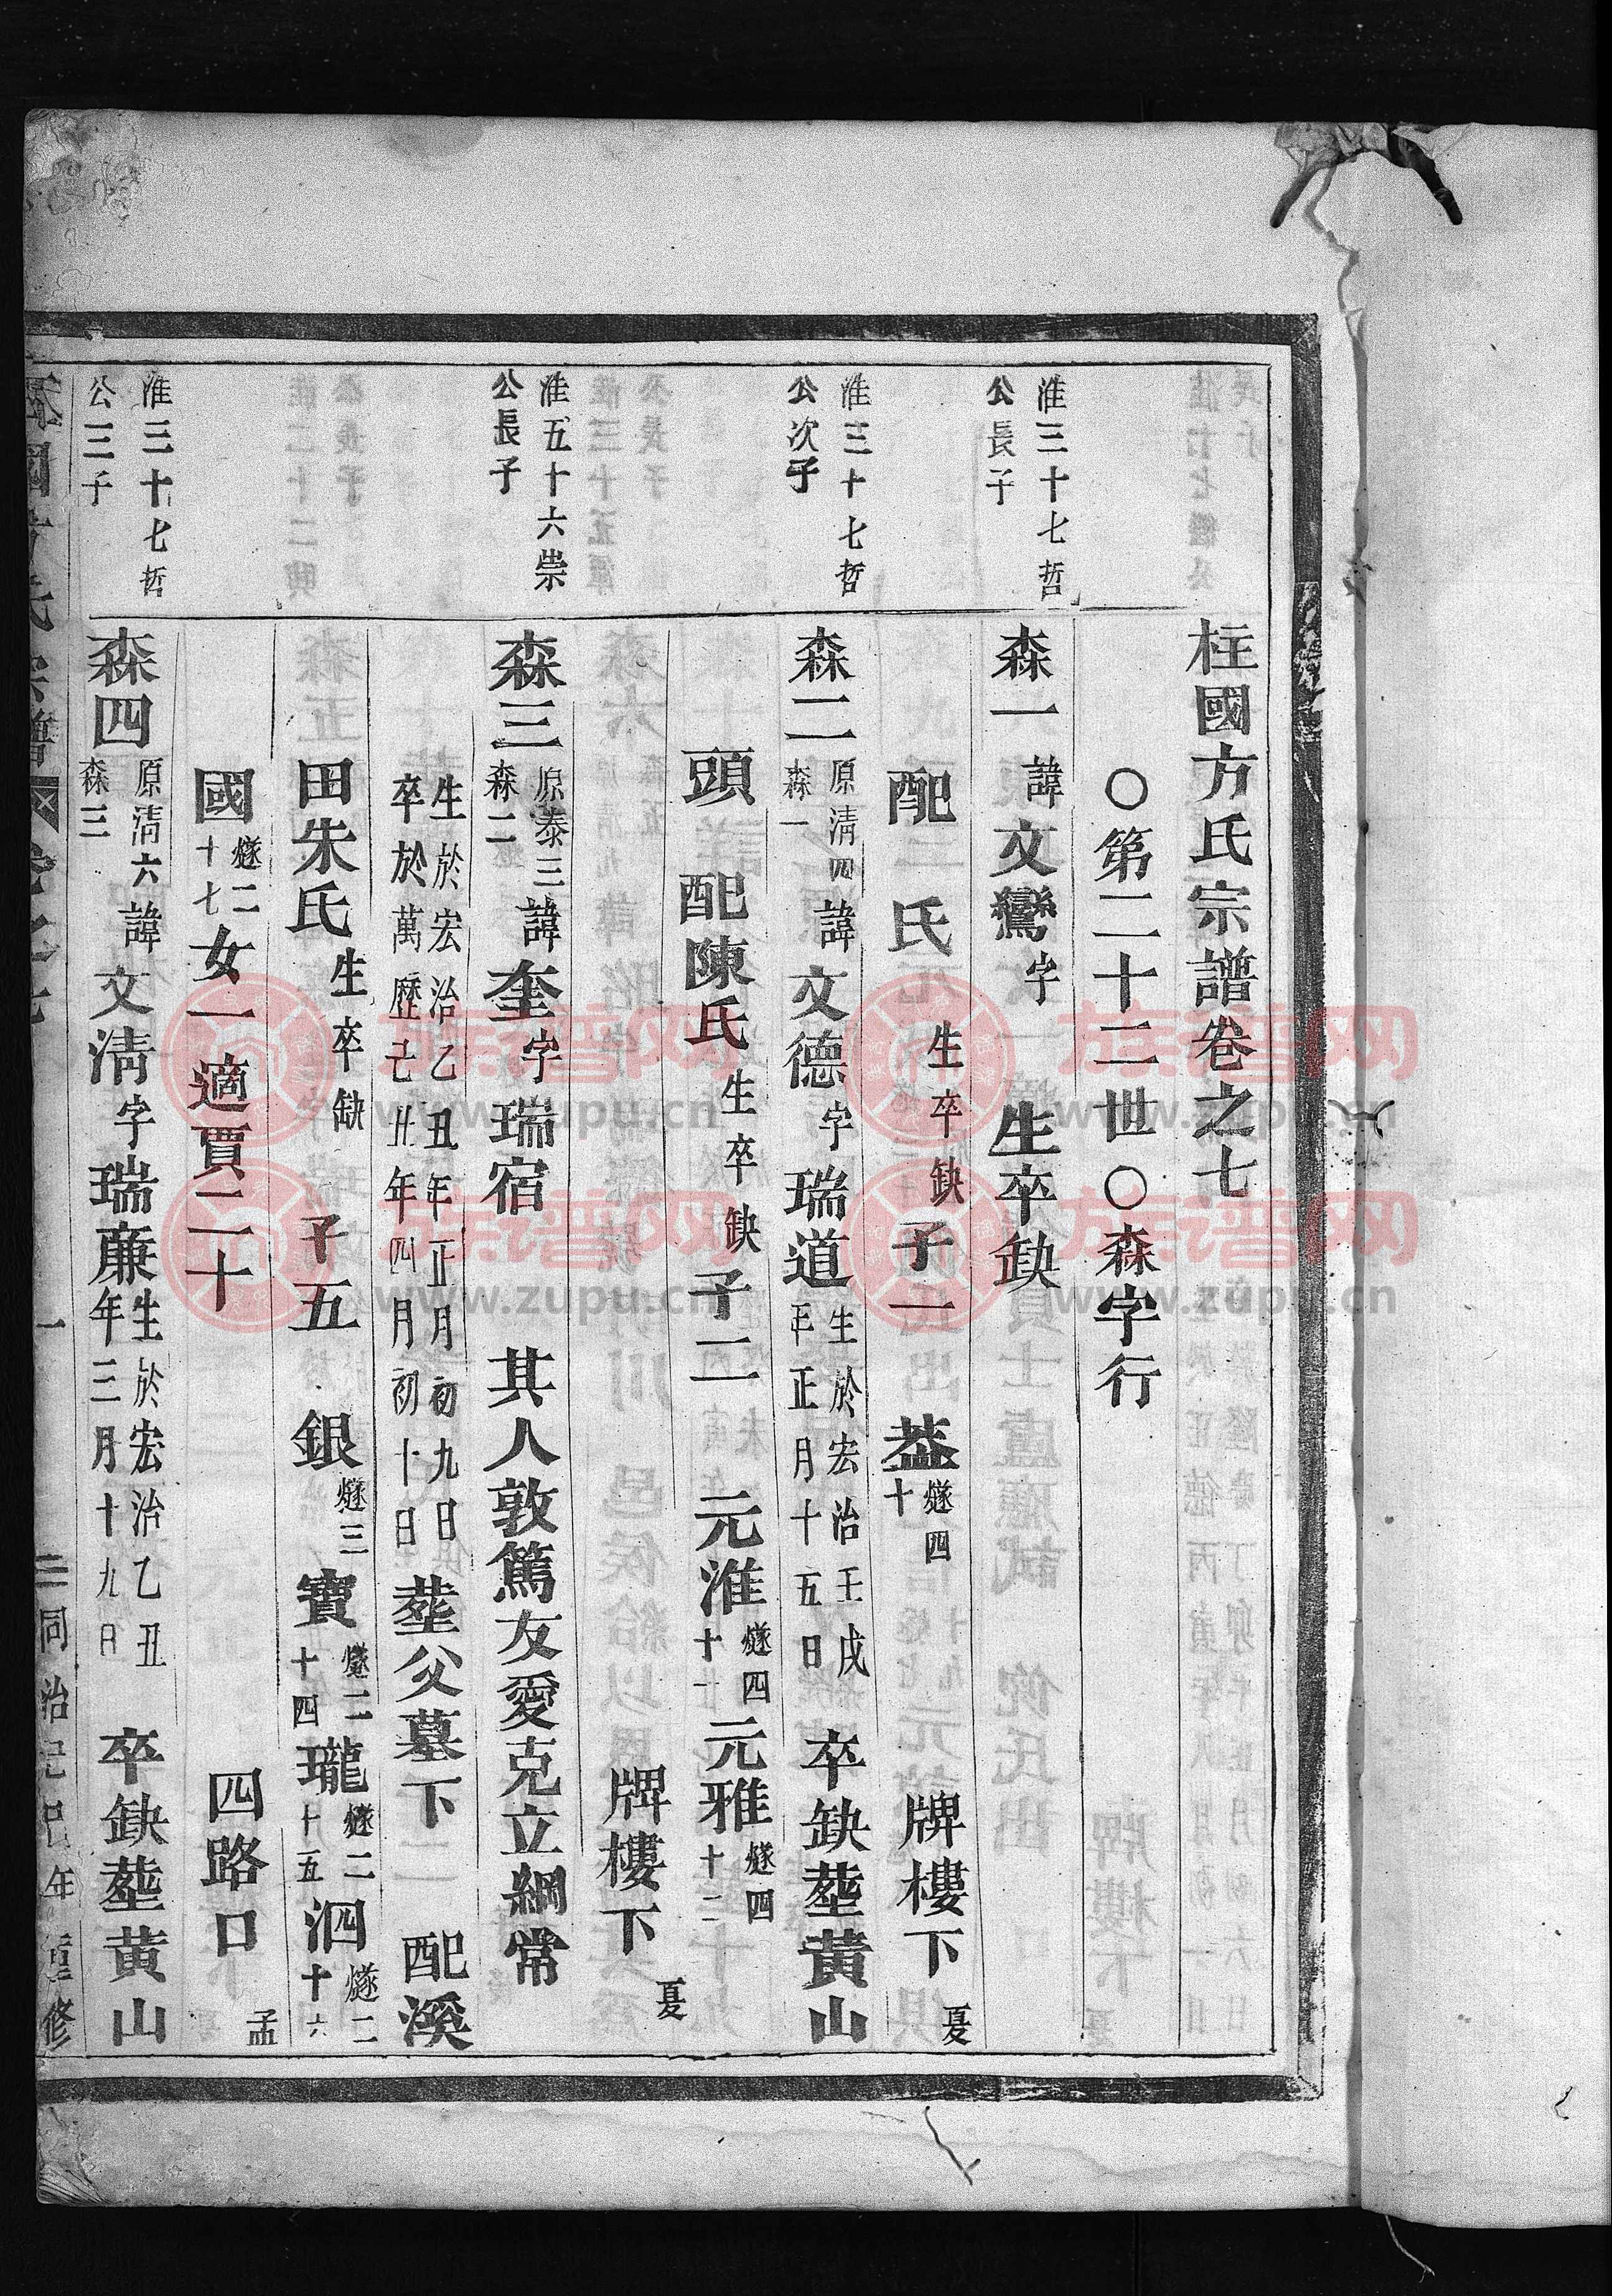 柱國方氏宗譜卷之七
○第二十二世○森字行
淮三十七哲
公長子
森一 諱文鸞字 生卒缺
配 氏 生卒缺 子一 益 燧四
十
牌樓下 夏
淮三十七哲
公次子
森二 原清四
森一
諱文德字瑞道 生於宏治壬戌
年正月十五日
卒缺塟黄山
頭 配陳氏 生卒缺 子二 元淮 燧四
十一
元雅 燧四
十二
牌樓下 夏
淮五十六崇
公長子
森三 原泰三
森二
諱奎字瑞宿 其人敦篤友愛克立綱常
生於宏治乙丑年正月初九日
卒於萬歷己丑年四月初十日
塟父墓下 配溪
田朱氏 生卒缺 子五 銀 燧三
寶 燧二
十四
瓏 燧二
十五
泗 燧二
十六
國 燧二
十七
女一適賈二十 四路口 孟
淮三十七哲
公三子
森四 原清六
森三
諱文清字瑞廉 生於宏治乙丑
年三月十九日
卒缺塟黄山
同治己巳年重修
族谱网
www.zupu.cn
族谱网
www.zupu.cn
族谱网
www.zupu.cn
族谱网
www.zupu.cn